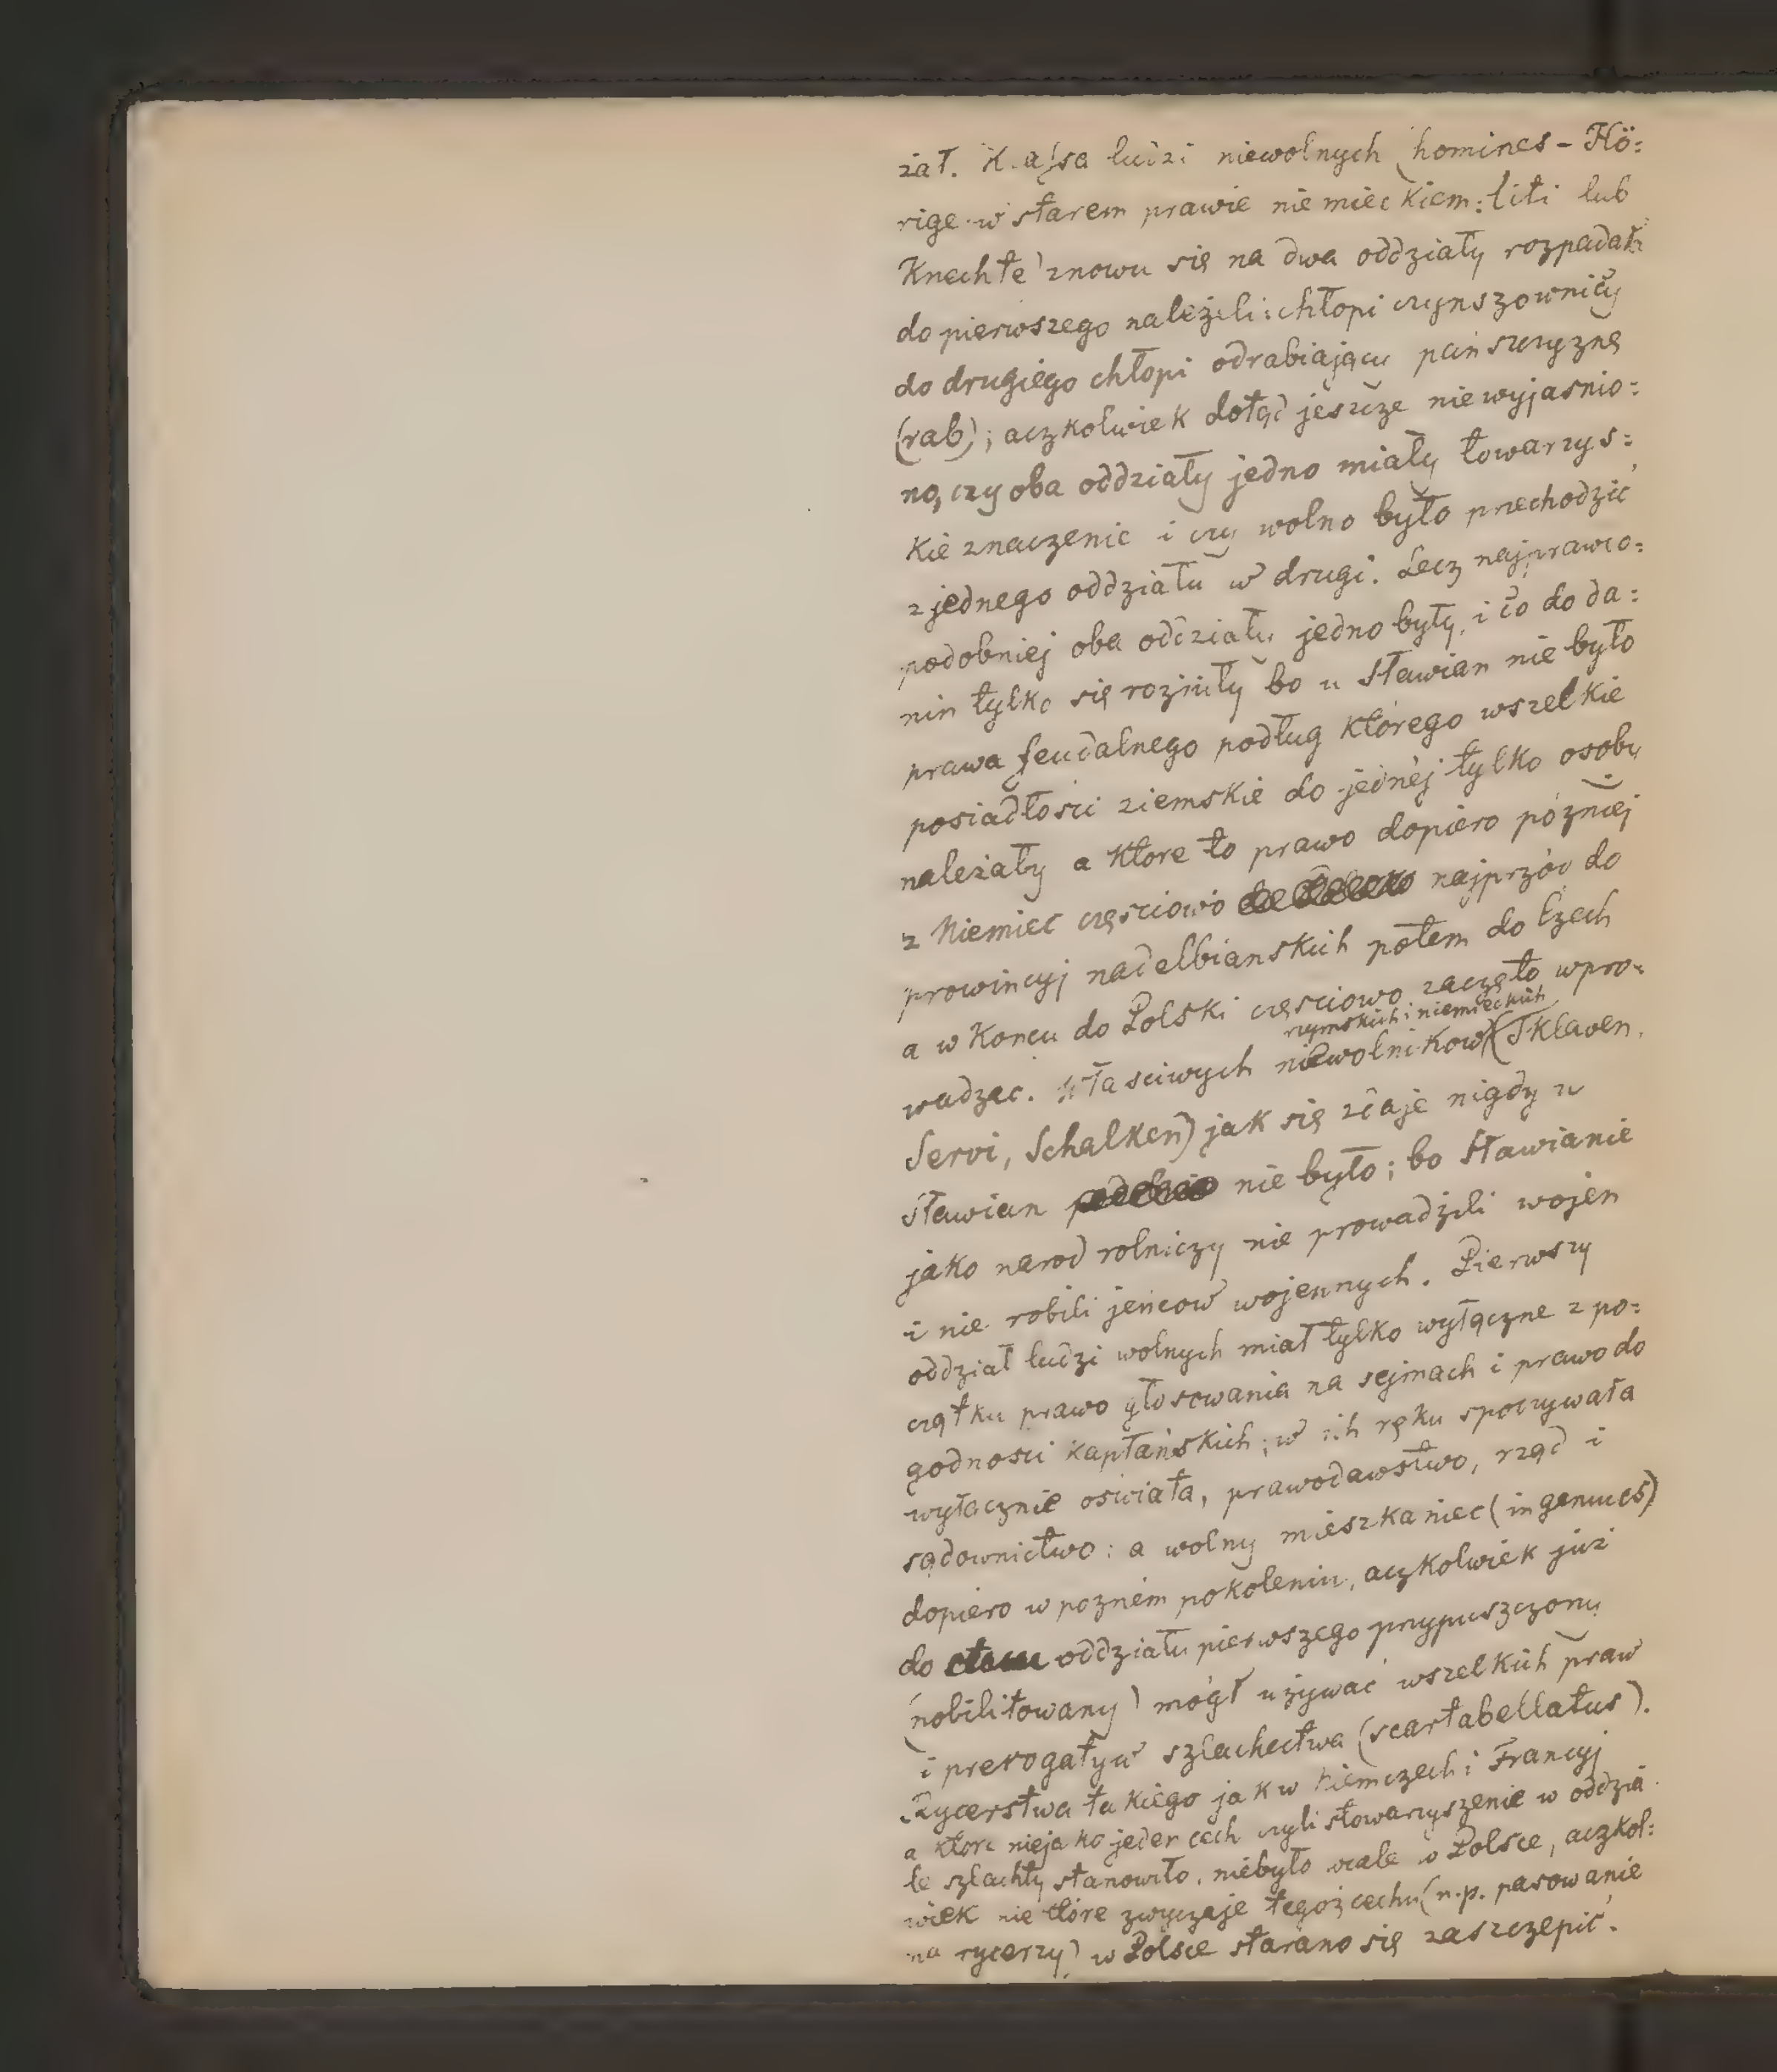 żał. Klassa ludzi niewolnych (homines - Hö:
rige w starem prawie niemieckiem: liti lub
Knechte) znowu się na dwa oddziały rozpadała
do pierwszego należeli: chłopi czynszowniczy
do drugiego chłopi odrabiający pańszczyznę
(rab); aczkolwiek dotąd jeszcze niewyjasnio:
no, czy oba oddziały jedno miały towarzys:
kie znaczenie i czy wolno było przechodzić
z jednego oddziału w drugi. Lecz najprawdo:
podobniej oba oddziały jedno były, i co do da:
nin tylko się rożniły bo u Sławian nie było
prawa feudalnego podług którego wszelkie
posiadłości ziemskie do jednéj tylko osoby
należały a które to prawo dopiero pózniej
z Niemiec częsciowo najprzód do
prowincyj nadelbianskich potem do Czech
a w Koncu do Polski częsciowo zaczęto wpro:
rzymskich i niemieckich
wadzac. Własciwych niewolnikow (Sklaven,
Servi, Schalken) jak się zdaje nigdy u
Sławian nie było; bo Sławianie
jako narod rolniczy nie prowadzili wojen
i nie robili jeńcow wojennych. Pierwszy
oddział ludzi wolnych miał tylko wyłączne z po:
czątku prawo głosowania na sejmach i prawo do
godnosci kapłańskich; w ich ręku spoczywała
wyłacznie oswiata, prawodawstwo, rząd i
sądownictwo: a wolny mieszkaniec (ingenuus)
dopiero w poznem pokoleniu, aczkolwiek już
do oddziału pierwszego przypuszczony
(nobilitowany) mógł używać wszelkich praw
i prerogatyw szlachectwa (scartabellatus).
Rycerstwa takiego jak w Niemczech i Francyj
a które niejako jeden cech czyli stowarzyszenie w oddzia
le szlachty stanowiło, niebyło wcale w Polsce, aczkol:
wiek nie które zwyczaje tegoż cechu (n.p. pasowanie
na rycerzy) w Polsce starano się zaszczepić.